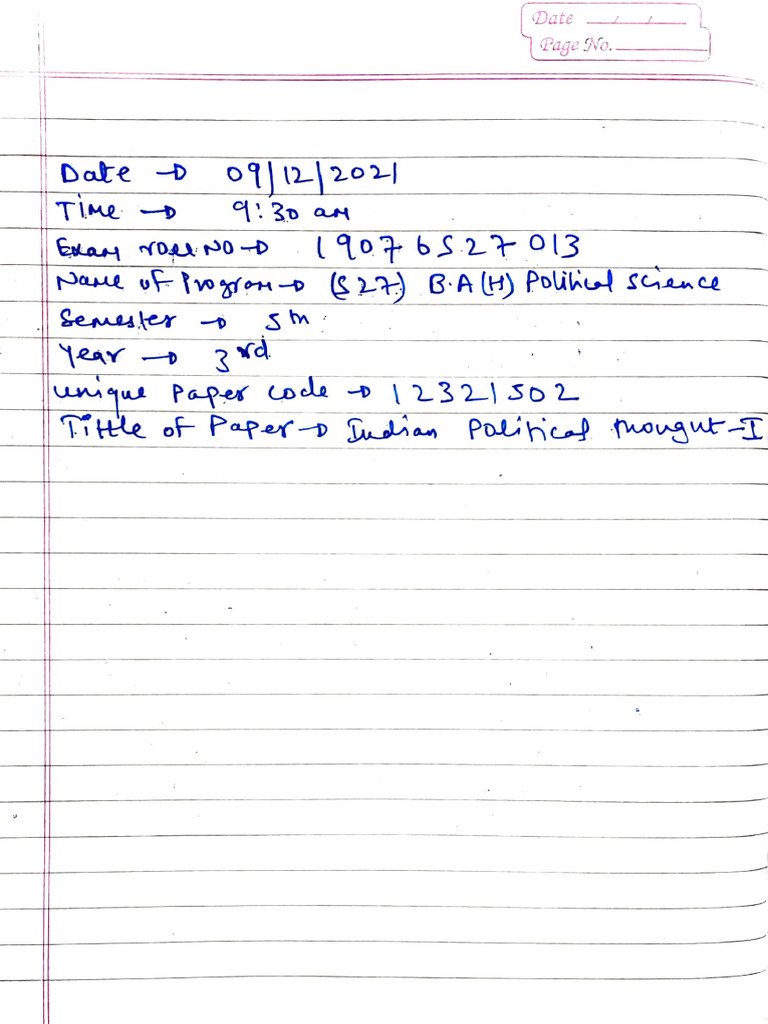 Date __/__/__
Page No.
Date → 09/12/2021
Time → 9:30 am
Exam roll No → 19076527013
Name of Program → (527) B.A(H) Political science
Semester → 5th
Year → 3rd
unique Paper code → 12321502
Tittle of Paper → Indian Political thought-I